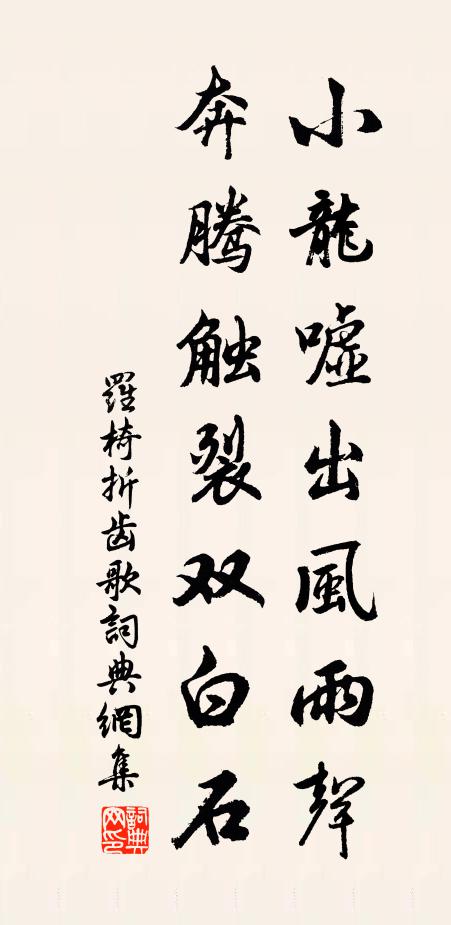 小龍嘘出風雨聲
奔騰触裂双白石
羅椅折齿歌詞典網集
詞典網印